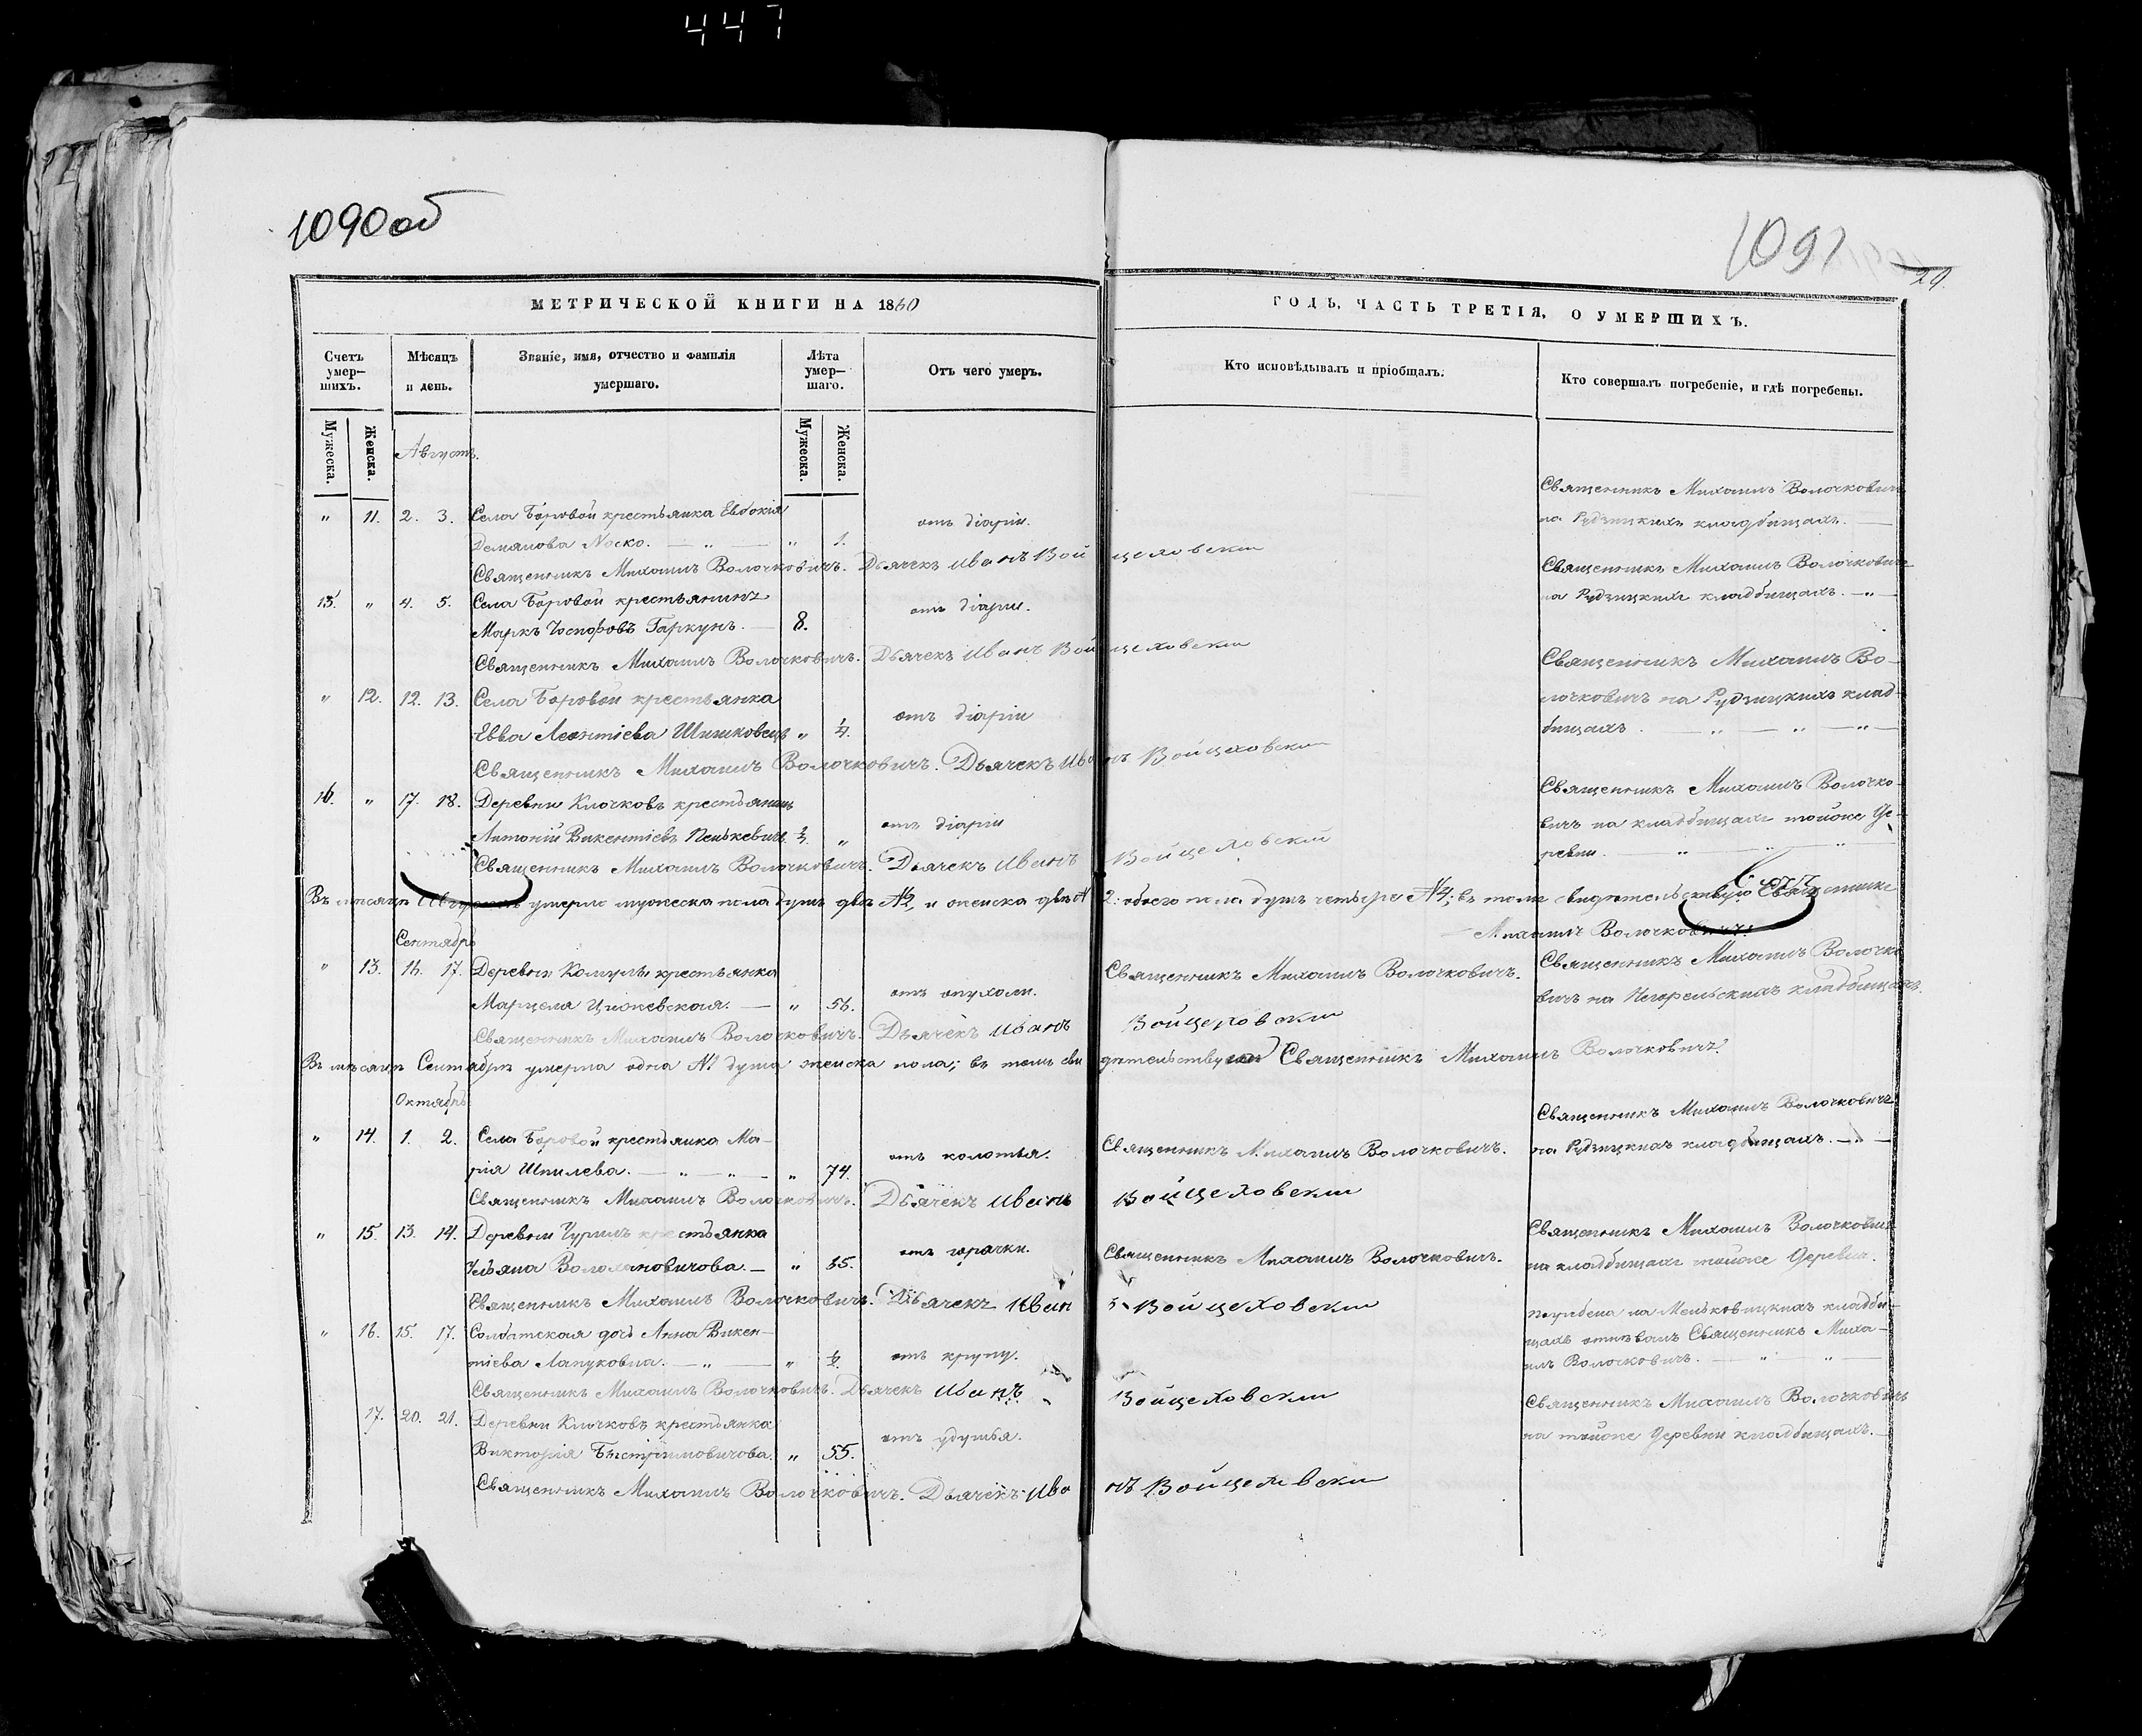 447
1090об
1091
29.
МЕТРИЧЕСКОЙ КНИГИ НА 1860
ГОДЪ, ЧАСТЬ ТРЕТІЯ, О УМЕРШИХЪ.
Счетъ умер-шихъ.
Мѣсяцъ и день.
Званіе, имя, отчество и фамилія умершаго.
Лѣта умер-шаго.
Отъ чего умеръ.
Кто исповѣдывалъ и пріобщалъ.
Кто совершалъ погребеніе, и гдѣ погребены.
Мужеска.
Женска.
Мужеска.
Женска.
Августъ.
Священникъ Михаилъ Волочковичъ
" 11. 2. 3. Села Боровой крестьянка Евдокія
отъ діаріи.
на Рудзицкихъ кладбищахъ.
Демянова Носко. — " — " 1.
Священникъ Михаилъ Волочковичъ. Дьячекъ Иванъ Войцеховскій
Священникъ Михаилъ Волочковичъ
15. " 4. 5. Села Боровой крестьянинъ
отъ діаріи.
на Рудзицкихъ кладбищахъ. — " —
Маркъ Іосифовъ Гаркунъ. — 8.
Священникъ Михаилъ Волочковичъ. Дьячекъ Иванъ Войцеховскій
Священникъ Михаилъ Во-
" 12. 12. 13. Села Боровой крестьянка
лочковичъ на Рудзицкихъ клад-
отъ діаріи
Евва Леонтіева Шишковецъ " 1/4.
бищахъ. — " — " — " —
Священникъ Михаилъ Волочковичъ. Дьячекъ Иванъ Войцеховскій
Священникъ Михаилъ Волочко-
16. " 17. 18. Деревни Клочковъ крестьянинъ
отъ діаріи
вичъ на кладбищахъ тойже Де-
Антоній Викентіевъ Пенькевичъ "
ревни. — " — " —
Священникъ Михаилъ Волочковичъ. Дьячекъ Иванъ Войцеховскій
Въ мѣсяцѣ Августѣ умерло мужеска пола душъ двѣ №2, и женска двѣ №2: обоего пола душъ четыре №4; въ томъ свидѣтельствую Священникъ
Михаилъ Волочковичъ.
Сентябрь
" 13. 16. 17. Деревни крестьянка
Священникъ Михаилъ Волочковичъ.
Священникъ Михаилъ Волочко-
отъ опухоли.
Марцела Цижевская. — " 56.
вичъ на Негорельскихъ кладбищахъ.
Священникъ Михаилъ Волочковичъ. Дьячекъ Иванъ Войцеховскій
Въ мѣсяцѣ Сентябрѣ умерла одна №1 душа женска пола; въ томъ свидѣтельствую Священникъ Михаилъ Волочковичъ.
Октябрь
Священникъ Михаилъ Волочковичъ
" 14. 1. 2. Села Боровой крестьянка Ма-
отъ колотья.
Священникъ Михаилъ Волочковичъ.
на Рудзицкихъ кладбищахъ. — " —
рія Шпилева. — " — " — " 74.
Священникъ Михаилъ Волочковичъ. Дьячекъ Иванъ Войцеховскій
" 15. 13. 14. Деревни крестьянка
отъ горячки.
Священникъ Михаилъ Волочковичъ.
Священникъ Михаилъ Волочковичъ
Ульяна Волохановичова. — "
на кладбищахъ тойже Деревни.
Священникъ Михаилъ Волочковичъ. Дьячекъ Иванъ Войцеховскій
Погребена на Меньковицкихъ кладби-
" 16. 15. 17. Солдатская дочь Анна Викен-
щахъ отпѣвалъ Священникъ Миха-
тіева Лапуковна. — " — "
отъ крупу.
илъ Волочковичъ. — " — " —
Священникъ Михаилъ Волочковичъ. Дьячекъ Иванъ Войцеховскій
Священникъ Михаилъ Волочковичъ
17. 20. 21. Деревни Клочковъ крестьянка
отъ удушья.
на тойже Деревни кладбищахъ.
Викторія Быстримовичова. " 55.
Священникъ Михаилъ Волочковичъ. Дьячекъ Иванъ Войцеховскій